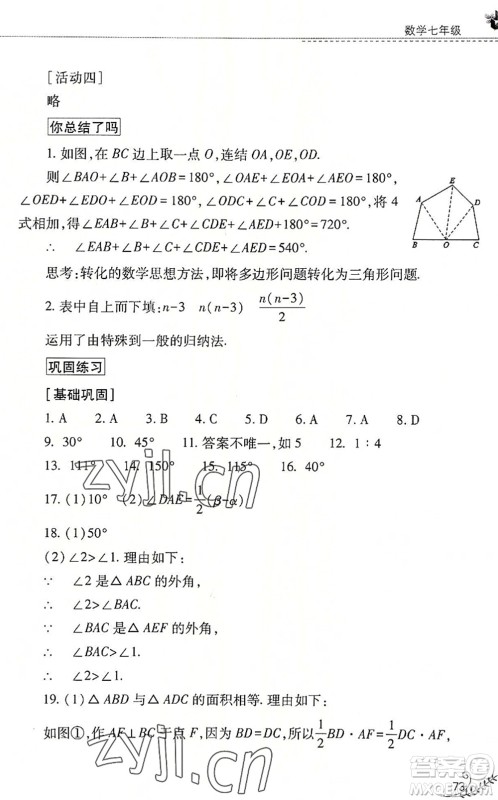 数学七年级
[活动四]
略
你总结了吗
1. 如图,在 BC 边上取一点 O,连结 OA,OE,OD.
则∠BAO+∠B+∠AOB=180°,∠OAE+∠OEA+∠AEO=180°,
∠OED+∠EDO+∠EOD=180°,∠ODC+∠C+∠COD=180°,将 4
式相加,得∠EAB+∠B+∠C+∠CDE+∠AED+180°=720°.
∴ ∠EAB+∠B+∠C+∠CDE+∠AED=540°.
A E D B O C
思考:转化的数学思想方法,即将多边形问题转化为三角形问题.
2. 表中自上而下填:n-3 n(n-3) n(n-3)/2
运用了由特殊到一般的归纳法.
巩固练习
[基础巩固]
1. A 2. D 3. A 4. C 5. A 6. D 7. A 8. D
9. 30° 10. 45° 11. 答案不唯一,如 5 12. 1∶4
13. 111° 14. 150° 15. 115° 16. 40°
17. (1)10° (2)∠DAE=1/2(β-α)
18. (1)50°
(2)∠2>∠1. 理由如下:
∵ ∠2 是△ABC 的外角,
∴ ∠2>∠BAC.
∵ ∠BAC 是△AEF 的外角,
∴ ∠BAC>∠1.
∴ ∠2>∠1.
19. (1)△ABD 与△ADC 的面积相等. 理由如下:
如图①,作 AF⊥BC 于点 F,因为 BD=DC,所以1/2BD·AF=1/2DC·AF,
73
zyjl.cn
zyjl.cn
答案圈
MXQE.COM